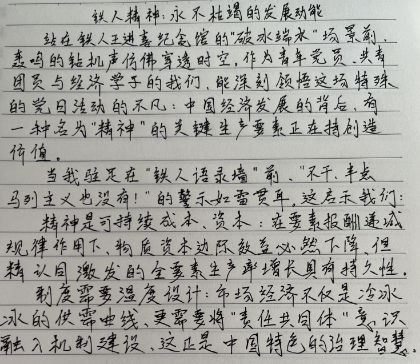 铁人精神:永不枯竭的发展动能
站在铁人王进喜纪念馆的"破冰端水"场景前,
轰鸣的钻机声仿佛穿透时空。作为青年党员、共青
团员与经济学子的我们,能深刻领悟这场特殊
的党日活动的不凡:中国经济发展的背后,有
一种名为"精神"的关键生产要素正在持创造
价值。
当我驻足在"铁人语录墙"前,"不干,半点
马列主义也没有!"的警示如雷贯耳,这启示我们:
精神是可持续成本、资本:在要素报酬递减
规律作用下,物质资本边际效益必然下降,但
精认同激发的全要素生产率增长具有持久性。
制度需要温度设计:市场经济不仅是冷冰
冰的供需曲线、更需要将"责任共同体"意识
融入机制建设、这正是中国特色的治理智慧